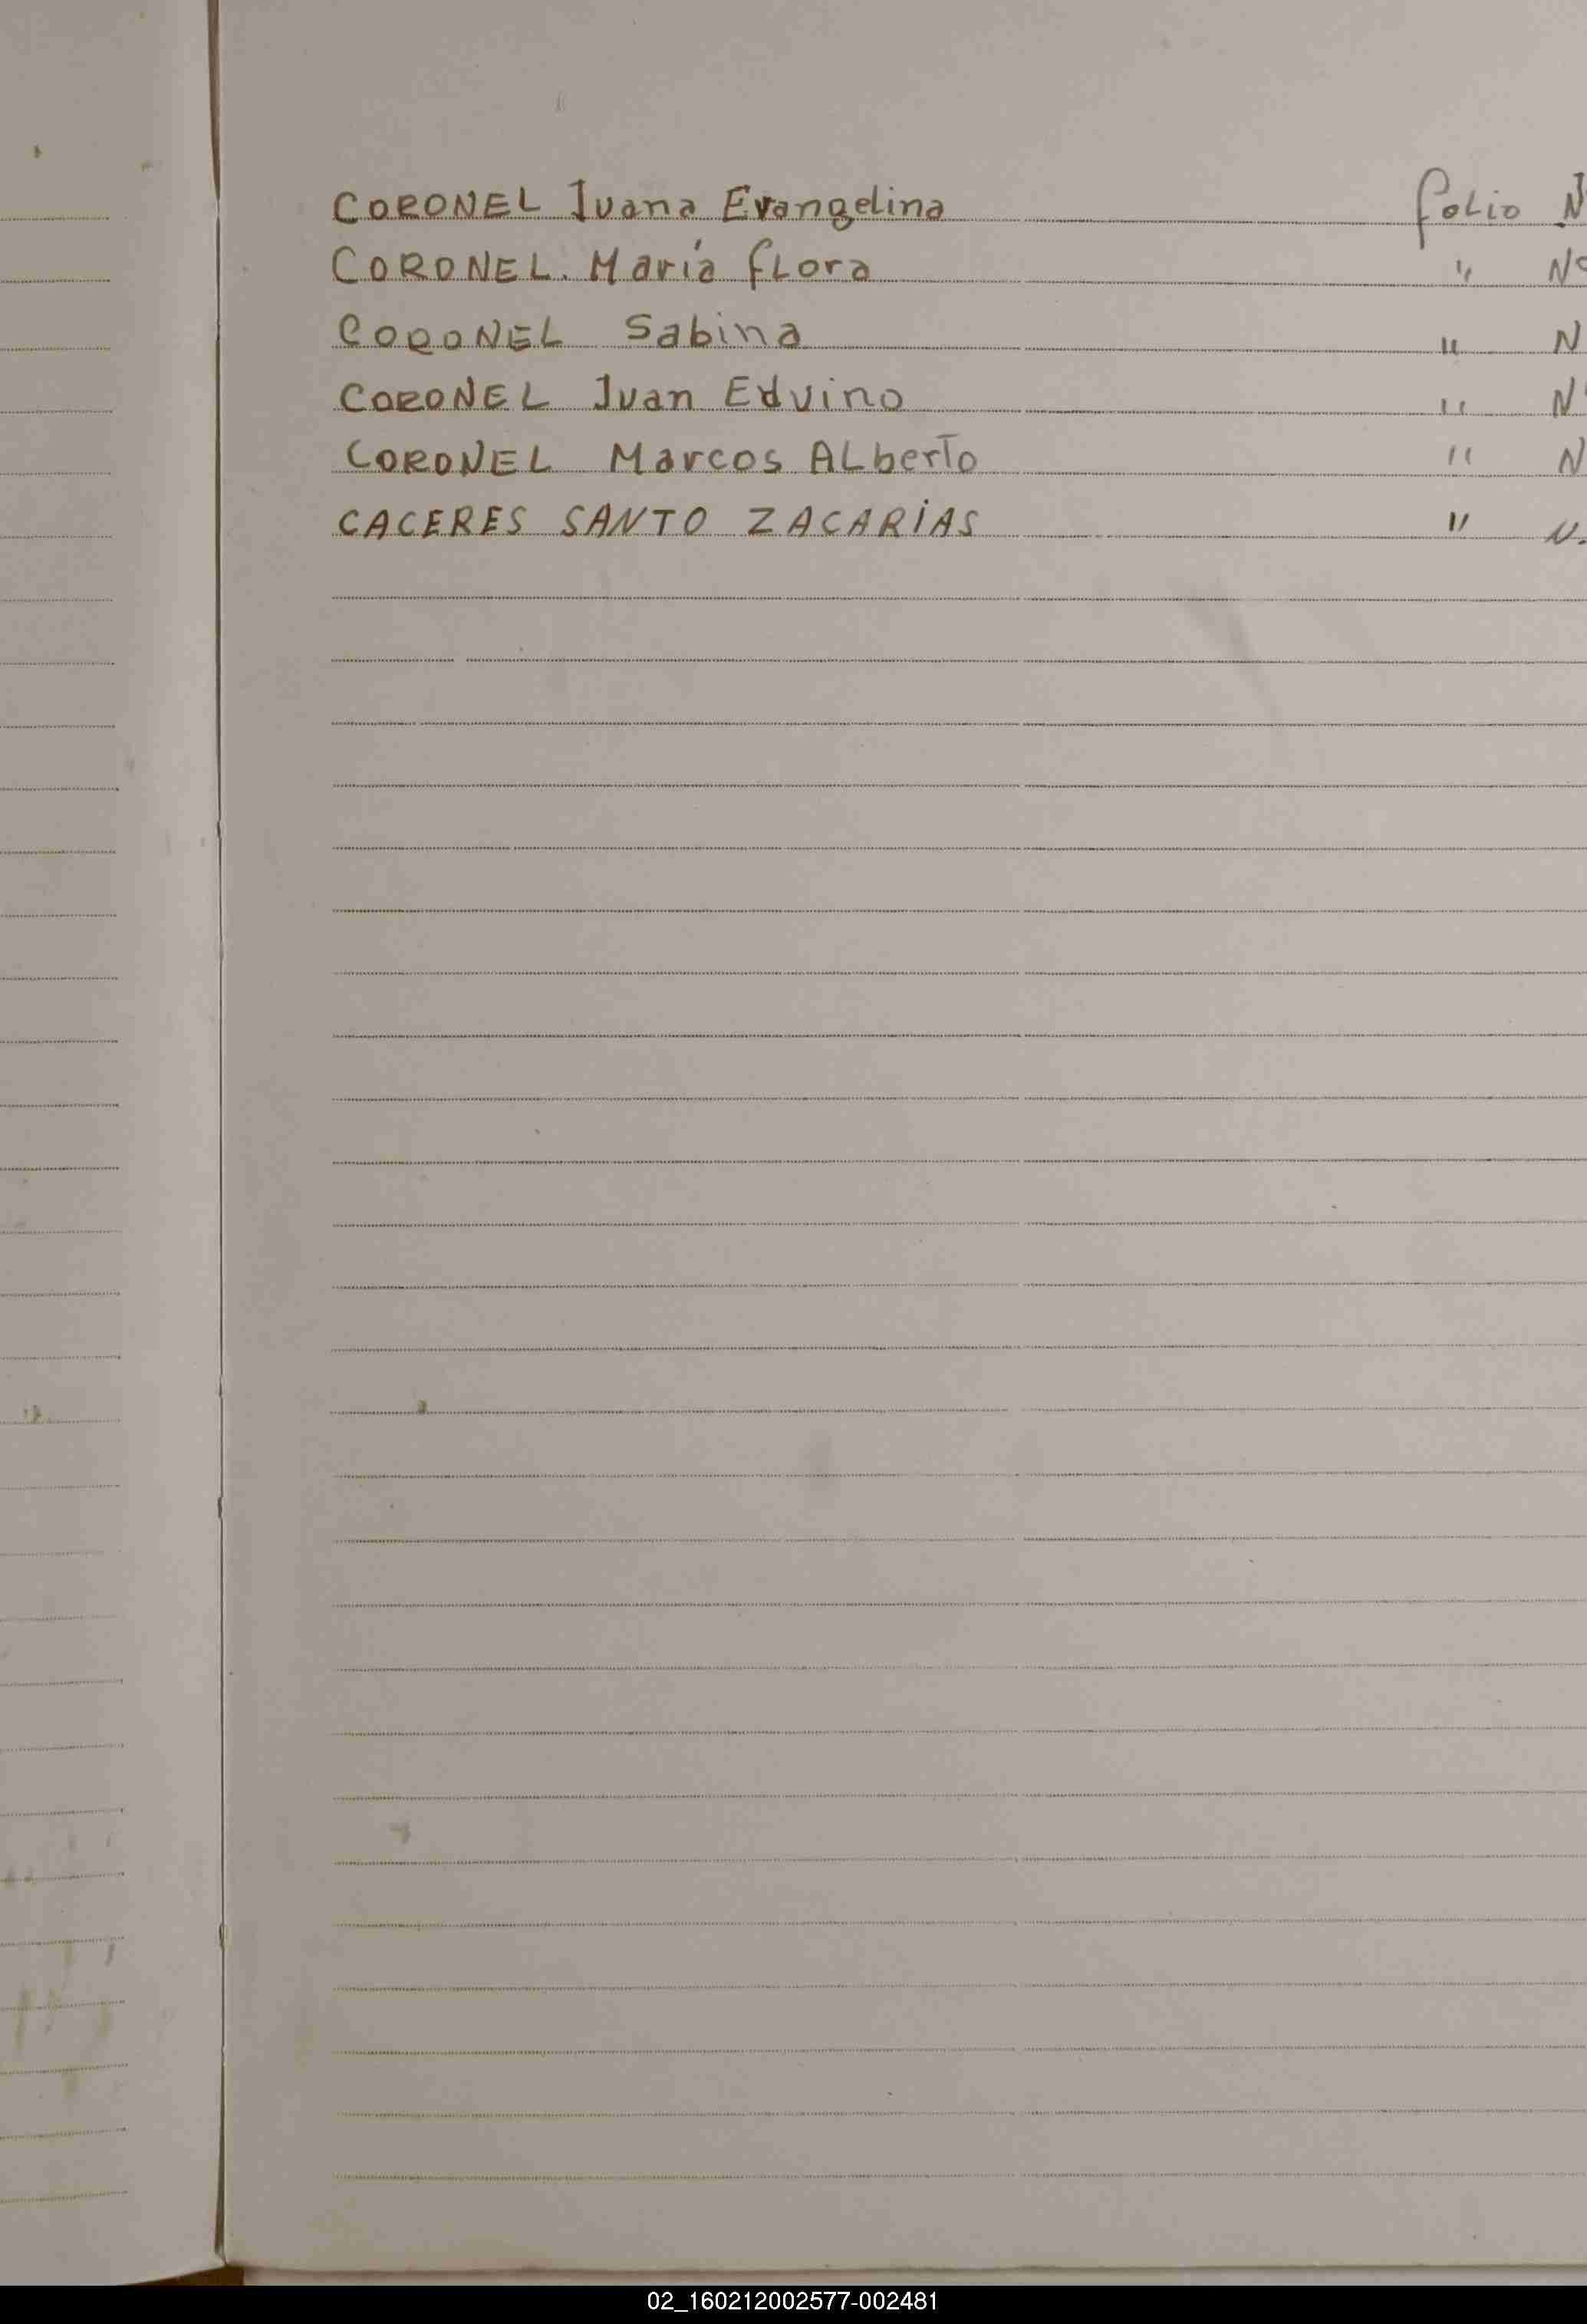 CORONEL Juana Evangelina folio N
CORONEL. María fLora " Nº
CORONEL Sabina " N
CORONEL Juan Edvino " Nº
CORONEL Marcos ALberto " N
CACERES SANTO ZACARIAS " N.
02_160212002577-002481